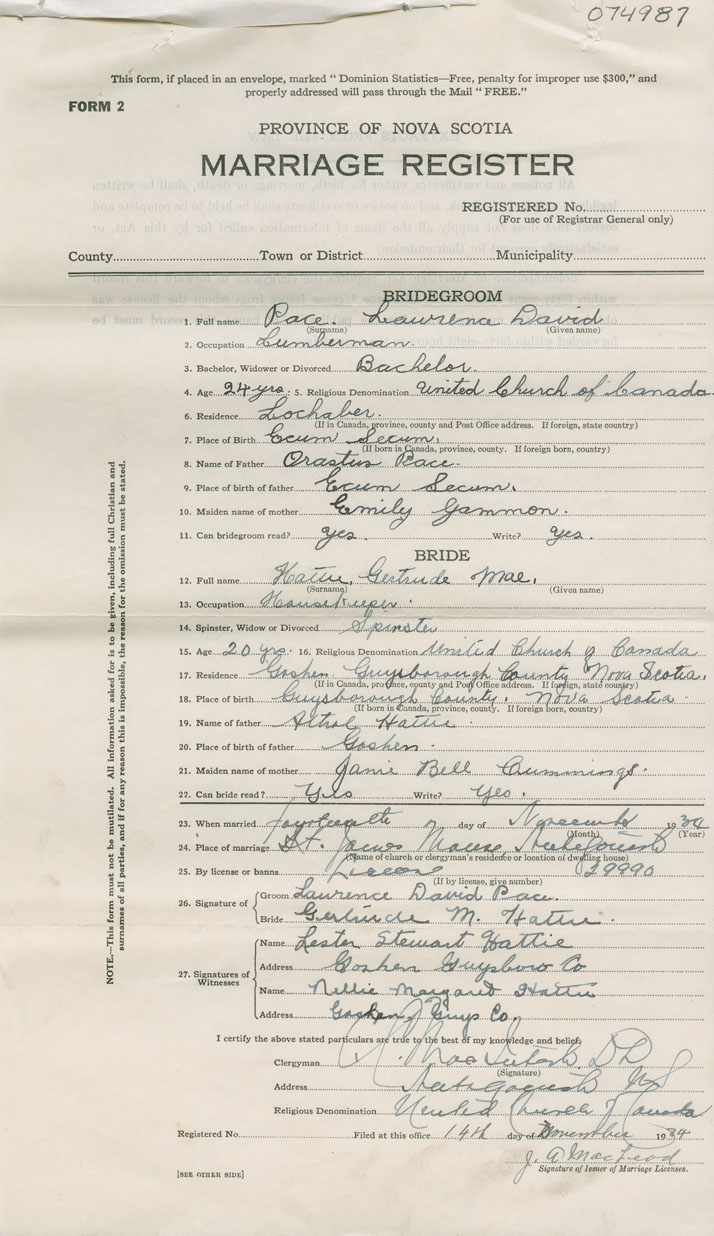 074987
This form, if placed in an envelope, marked "Dominion Statistics—Free, penalty for improper use $300," and
properly addressed will pass through the Mail "FREE."
FORM 2
PROVINCE OF NOVA SCOTIA
MARRIAGE REGISTER
REGISTERED No.
(For use of Registrar General only)
County Town or District Municipality
BRIDEGROOM
1. Full name Pace. Lawrence David
(Surname) (Given name)
2. Occupation Lumberman.
3. Bachelor, Widower or Divorced Bachelor.
4. Age 24 yrs. 5. Religious Denomination United Church of Canada.
6. Residence Lochaber.
(If in Canada, province, county and Post Office address. If foreign, state country)
7. Place of Birth Ecum Secum.
(If born in Canada, province, county. If foreign born, country)
8. Name of Father Orastus Pace.
9. Place of birth of father Ecum Secum.
10. Maiden name of mother Emily Gammon.
11. Can bridegroom read? yes. Write? yes.
BRIDE
12. Full name Hattie, Gertrude Mae.
(Surname) (Given name)
13. Occupation Housekeeper.
14. Spinster, Widow or Divorced Spinster
15. Age 20 yrs. 16. Religious Denomination United Church of Canada
17. Residence Goshen Guysborough County Nova Scotia.
(If in Canada, province, county and Post Office address. If foreign, state country)
18. Place of birth Guysborough County. Nova Scotia.
(If born in Canada, province, county. If foreign born, country)
19. Name of father Hattie.
20. Place of birth of father Goshen.
21. Maiden name of mother Janie Bell Cummings.
22. Can bride read? Yes Write? Yes.
23. When married fourteenth day of November 1934
(Month) (Year)
24. Place of marriage St. James Manse, Antigonish
(Name of church or clergyman's residence or location of dwelling house)
25. By license or banns License 29990
(If by license, give number)
26. Signature of Groom Lawrence David Pace.
Bride Gertrude M. Hattie.
27. Signatures of Witnesses
Name Lester Stewart Hattie
Address Goshen Guysboro Co
Name Nellie Margaret Hattie
Address Goshen Guys Co.
I certify the above stated particulars are true to the best of my knowledge and belief,
Clergyman MacIntosh DD
(Signature)
Address Antigonish NS
Religious Denomination United Church of Canada
Registered No. Filed at this office 14th day of November 1934
J. A MacLeod
Signature of Issuer of Marriage Licenses.
[SEE OTHER SIDE]
NOTE.—This form must not be mutilated. All information asked for is to be given, including full Christian and
surnames of all parties, and if for any reason this is impossible, the reason for the omission must be stated.